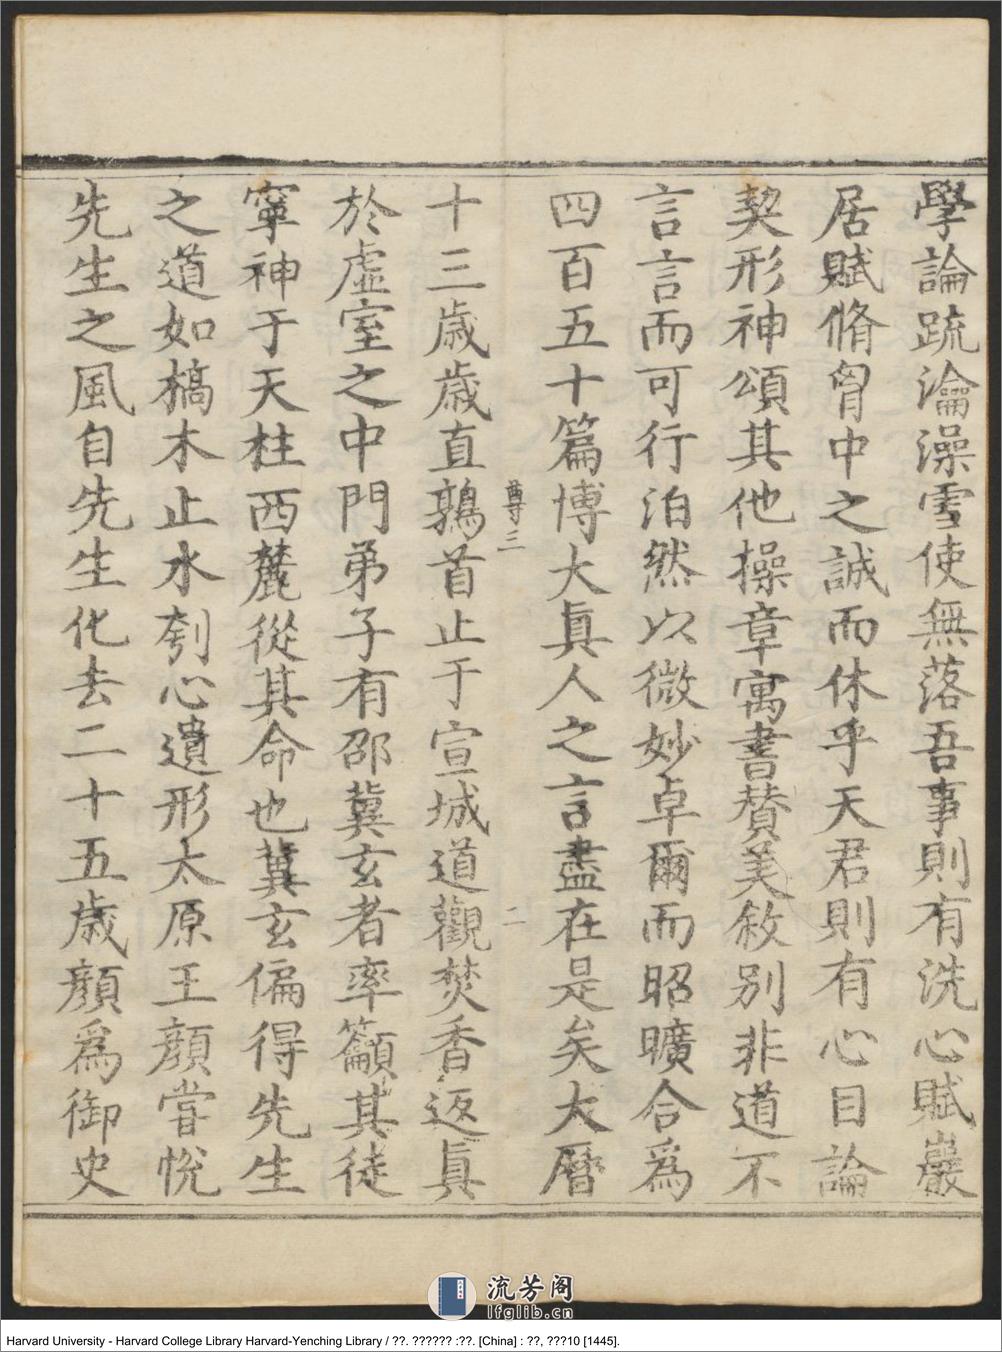 學論疏瀹澡雪使無落吾事則有洗心賦巖
居賦脩胷中之誠而休乎天君則有心目論
契形神頌其他操章寓書賛美敘別非道不
言言而可行泊然以微妙卓爾而昭曠合爲
四百五十篇博大眞人之言盡在是矣大曆
尊三
二
十三歲歲直鶉首止于宣城道觀焚香返眞
於虛室之中門弟子有邵冀玄者率籲其徒
寧神于天柱西麓從其命也冀玄偏得先生
之道如槁木止水刳心遺形太原王顔嘗悅
先生之風自先生化去二十五歲顔爲御史
流芳阁
lfglib.cn
Harvard University - Harvard College Library Harvard-Yenching Library / ??. ?????? :??. [China] : ??, ???10 [1445].